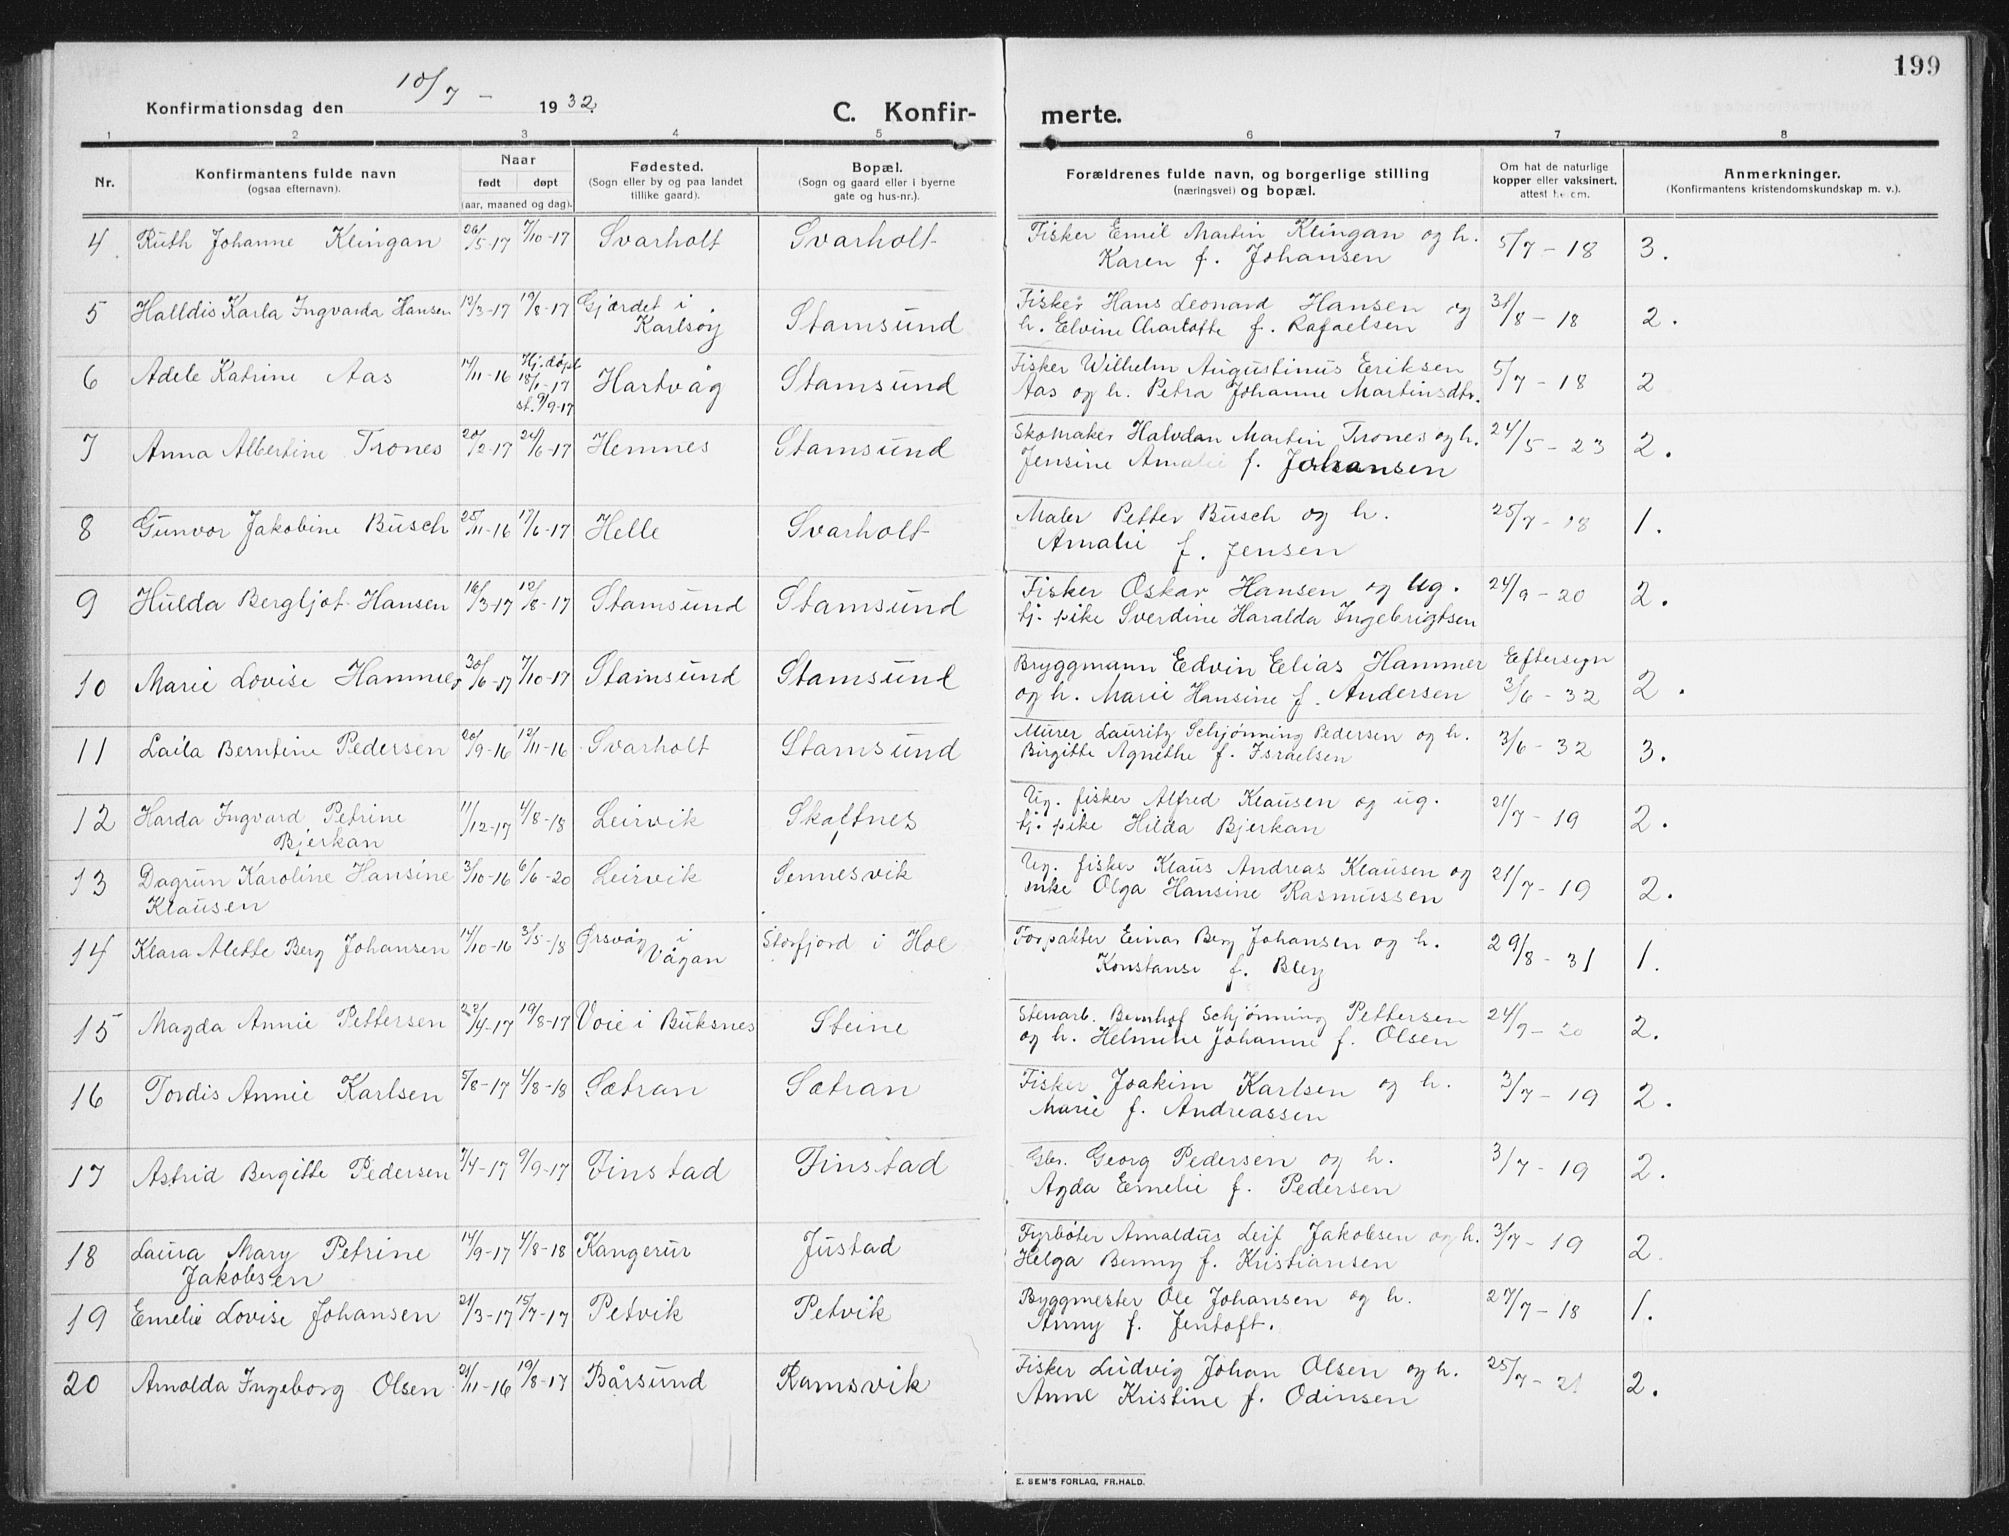 199
Konfirmationsdag den 10/7 - 1932.
C. Konfirmerte.
1 2 3 4 5 6 7 8
Nr.
Konfirmantens fulde navn
(ogsaa efternavn).
Naar
født døpt
(aar, maaned og dag).
Fødested.
(Sogn eller by og paa landet
tillike gaard).
Bopæl.
(Sogn og gaard eller i byerne
gate og hus-nr.).
Forældrenes fulde navn, og borgerlige stilling
(næringsvei) og bopæl.
Om hat de naturlige
kopper eller vaksinert,
attest herom.
Anmerkninger.
(Konfirmantens kristendomskundskap m. v.).
4 Ruth Johanne Klingan 26/5-17 7/10-17 Svarholt Svarholt Fisker Emil Martin Klingan og h. 5/7-18 3.
Karen f. Johansen
5 Halldis Karla Ingvarda Hansen 12/3-17 19/8-17 Gjærdet i Stamsund Fisker Hans Leonard Hansen og 31/8-18 2.
Karlsøy h. Elvine Charlotte f. Rafaelsen
6 Adele Katrine Aas 14/11-16 Hj. døpt Hartvåg Stamsund Fisker Wilhelm Augustinus Eriksen 5/7-18 2
18/1-17 Aas og h. Petra Johanne Martinsdtr.
st. 9/9-17
7 Anna Albertine Trones 20/2-17 24/6-17 Hemnes Stamsund Skomaker Halvdan Martin Trones og h. 24/5-23 2.
Jensine Amalie f. Johansen
8 Gunvor Jakobine Busch 25/11-16 17/6-17 Helle Svarholt Maler Petter Busch og h. 25/7-18 1.
Amalie f. Jensen
9 Hulda Bergljot Hansen 16/3-17 12/8-17 Stamsund Stamsund Fisker Oskar Hansen og ug. 24/9-20 2.
tj. pike Sverdine Haralda Ingebrigtsen
10 Marie Lovise Hammer 30/6-17 7/10-17 Stamsund Stamsund Bryggmann Edvin Elias Hammer Eftersyn 2.
og h. Marie Hansine f. Andersen 3/6-32
11 Laila Berntine Pedersen 20/9-16 12/11-16 Svarholt Stamsund Murer Lauritz Schjønning Pedersen og h. 3/6-32 3.
Birgitte Agnethe f. Israelsen
12 Harda Ingvard Petrine 11/12-17 4/8-18 Leirvik Skaftnes Ug. fisker Alfred Klausen og ug. 21/7-19 2.
Bjerkan tj. pike Hilda Bjerkan
13 Dagrun Karoline Hansine 3/10-16 6/6-20 Leirvik Sennesvik Ug. fisker Klaus Andreas Klausen og 21/7-19 2.
Klausen enke Olga Hansine Rasmussen
14 Klara Alette Berg Johansen 14/10-16 3/5-18 Ørsvåg i Storfjord i Hol Forpakter Einar Berg Johansen og h. 29/8-31 1.
Vågan Konstanse f. Bley
15 Magda Annie Pettersen 22/4-17 19/8-17 Voie i Buksnes Steine Stenarb. Bernhof Schjønning Pettersen 24/9-20 2.
og h. Helmine Johanne f. Olsen
16 Tordis Annie Karlsen 5/8-17 4/8-18 Sætran Sætran Fisker Joakim Karlsen og h. 3/7-19 2.
Marie f. Andreassen
17 Astrid Bergitte Pedersen 7/4-17 9/9-17 Finstad Finstad Gbr. Georg Pedersen og h. 3/7-19 2.
Agda Emelie f. Pedersen
18 Laura Mary Petrine 14/9-17 4/8-18 Kangerur Justad Fyrbøter Arnaldus Leif Jakobsen og h. 3/7-19 2.
Jakobsen Helga Benny f. Kristiansen
19 Emelie Lovise Johansen 21/3-17 15/7-17 Petvik Petvik Byggmester Ole Johansen og h. 27/7-18 1.
Anny f. Jentoft.
20 Arnolda Ingeborg Olsen 21/11-16 19/8-17 Bårsund Ramsvik Fisker Ludvig Johan Olsen og h. 25/7-21 2.
Anne Kristine f. Odinsen
E. SEM'S FORLAG, FR.HALD.